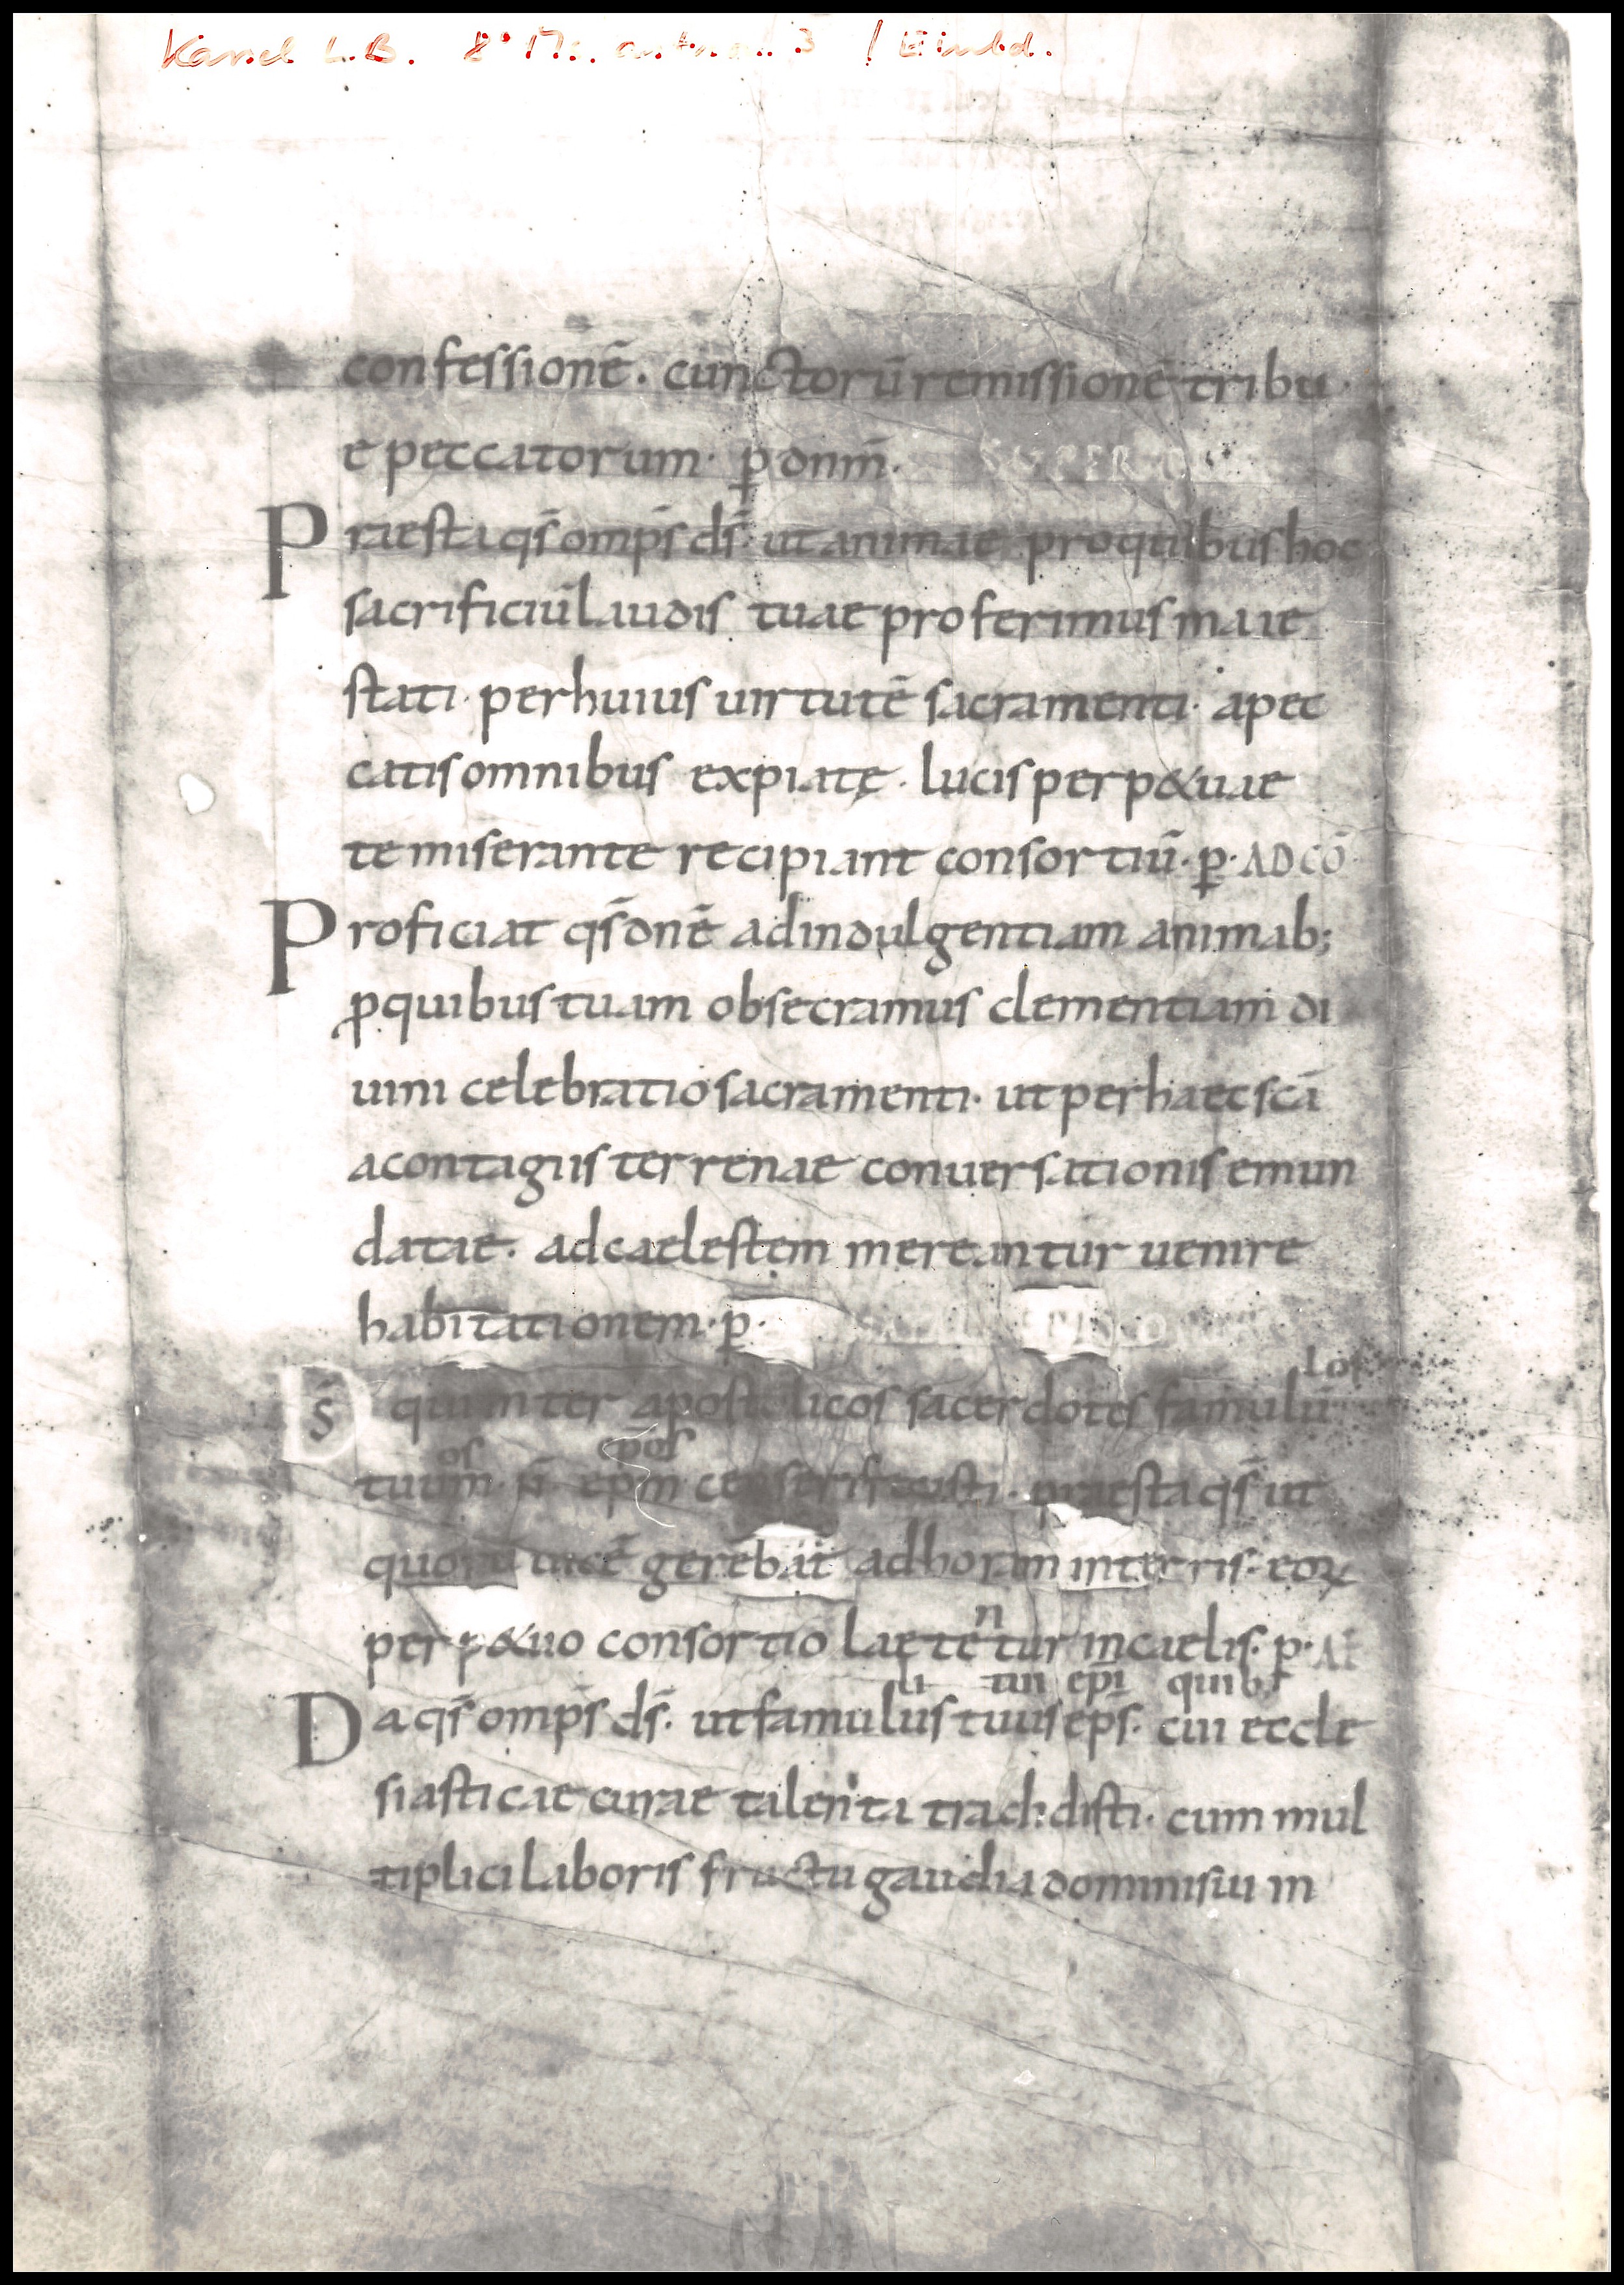 Kassel L.B. 8° 3 / Einbd.
confessionē. cunctorū remissionē tribu
e peccatorum· p̄ dnm̄. SUPER
Praesta qs̄ omps̄ ds̄· ut animae pro quibus hoc
sacrificiū laudis tuae proferimus maie
stati· per huius uirtutē sacramenti· a pec
catis omnibus expiatę· lucis perp&uae
te miserante recipiant consortiū· p̄· AD CŌ
Proficiat qs̄ dnē ad indulgentiam animab;
ꝓ quibus tuam obsecramus clementiam di
uini celebratio sacramenti· ut per haec scā
a contagiis terrenae conuersationis emun
datae· ad caelestem mereantur uenire
habitationem· p̄·
los
Ds̄ qui inter apostolicos sacerdotes famulū
os epōs
tuum· n̄· epm̄ censeri fecisti· praesta qs̄ ut
quorū uicē gerēbat ad horam in terris· eoꝝ
n
perp&uo consortio laetetur in caelis· p̄·
li tui ep̄i quib;
Da qs̄ omps̄ ds̄· ut famulus tuus eps̄· cui eccle
siasticae curae talenta tradidisti· cum mul
tiplici laboris fructu gaudia domini sui in